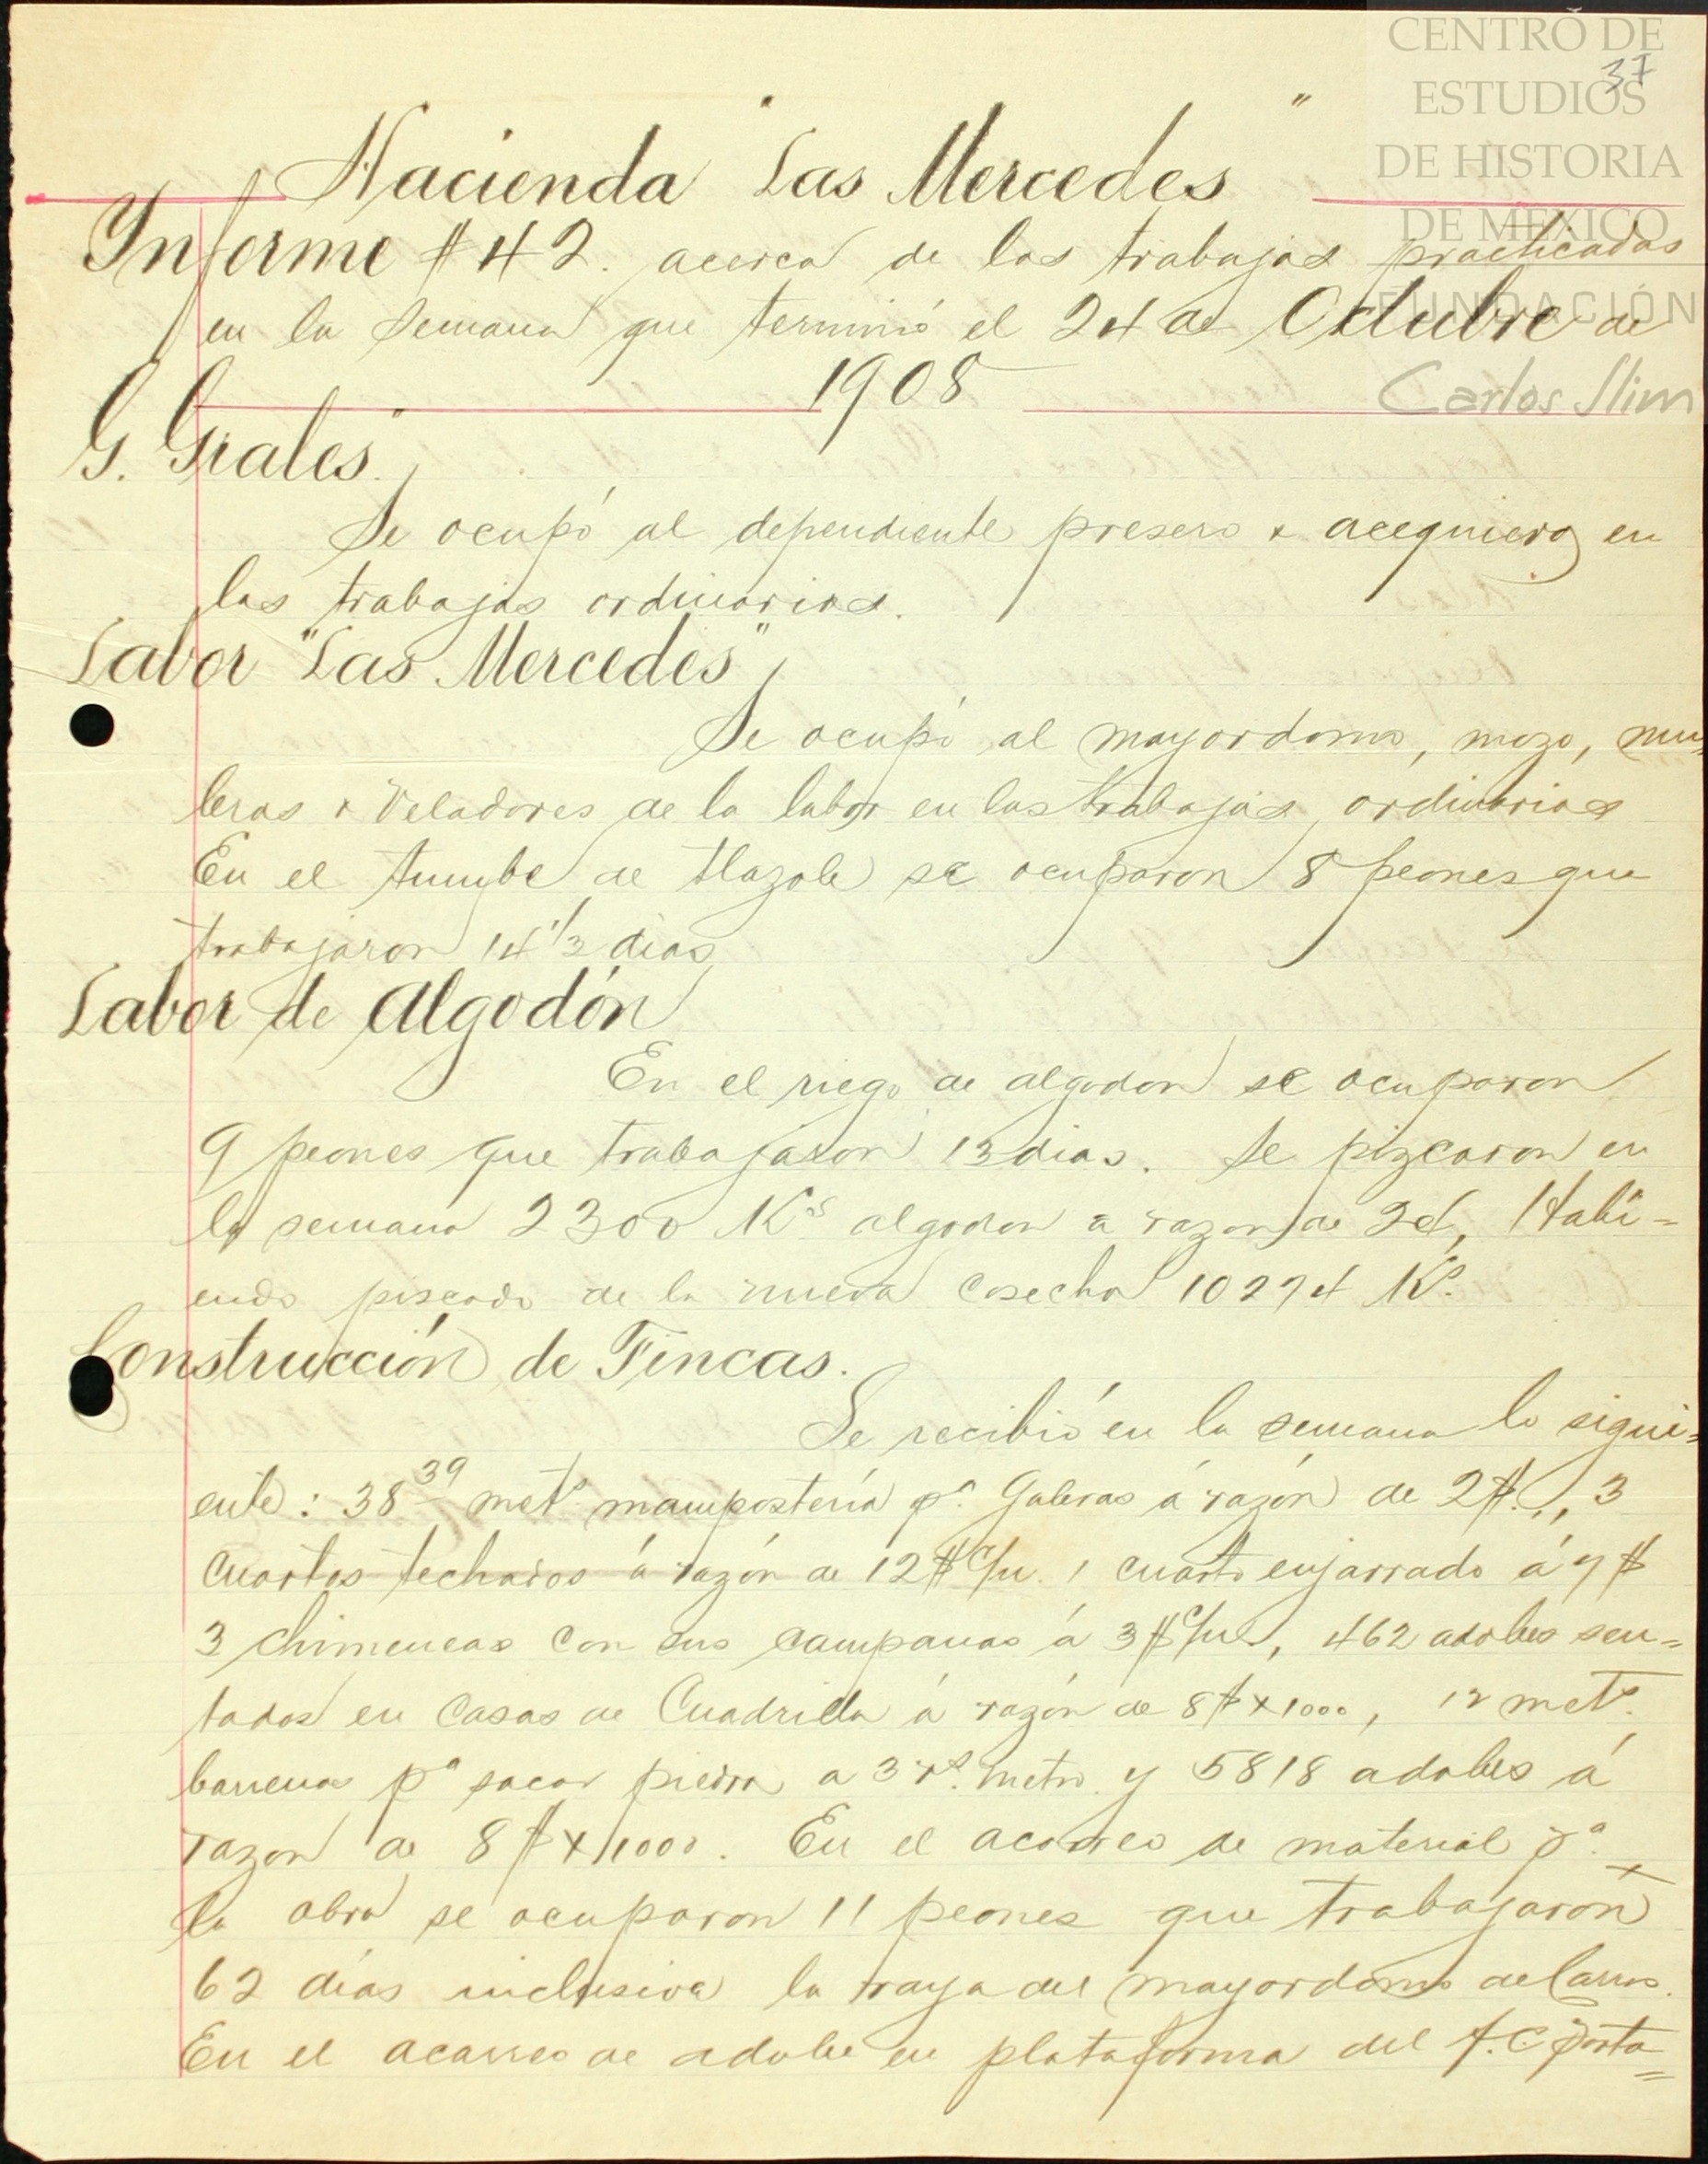 CENTRO DE
ESTUDIOS
DE HISTORIA
DE MEXICO
FUNDACIÓN
Carlos Slim
37
Hacienda "Las Mercedes"
Informe #42. acerca de los trabajos practicados
en la semana que terminó el 24 de Octubre de
1908
G. Grales.
Se ocupó al dependiente presero x acequiero en
los trabajos ordinarios.
Labor "Las Mercedes"
Se ocupó al mayordomo, mozo, mu-
leros x Veladores de la labor en los trabajos ordinarios
En el tumbe de tlazole se ocuparon 8 peones que
trabajaron 14 1/2 dias
Labor de Algodón
En el riego de algodon se ocuparon
9 peones que trabajaron 13 dias. Se pizcaron en
la semana 2300 Ks algodon a razon de 2¢, Habi=
endo piscado de la nueva cosecha 10274 Ks.
Construcción de Fincas.
Se recibió en la semana lo sigui=
ente: 38 39 mets. mampostería pa. Galeras á razón de 2$., 3
cuartos techados á razón de 12$ c/u. 1 cuarto enjarrado á 7$
3 chimeneas con sus campanas á 3$ c/u, 462 adobes sen=
tados en Casas de Cuadrilla á razón de 8$ x 1000, 12 mets.
barrena pa sacar piedra a 3 rs. metro y 5818 adobes á
razon de 8$ x 1000. En el acarreo de material pa.
la obra se ocuparon 11 peones que trabajaron
62 días inclusive la raya del mayordomo de Carros.
En el acarreo de adobe en plataforma del f.c. porta=